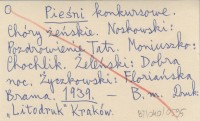 Pieśni konkursowe.
Chóry żeńskie. Noskowski:
Pozdrowienie Tatr. Moniuszko:
Chochlik. Żeleński: Dobra
noc. Życzkowski: Floriańska
Brama. 1939. B. m. Druk.
„Litodruk" Kraków.